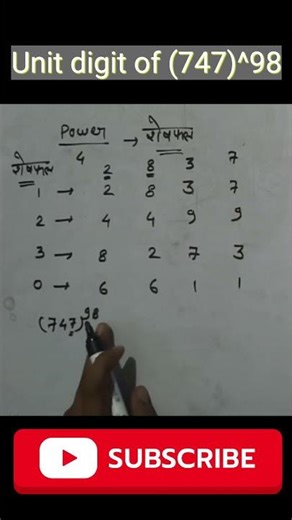 Unit digit of (747)^98
Power → शेषफल
शेषफल 4 2 8 3 7
1 → 2 8 3 7
2 → 4 4 9 9
3 → 8 2 7 3
0 → 6 6 1 1
(747)^98
SUBSCRIBE